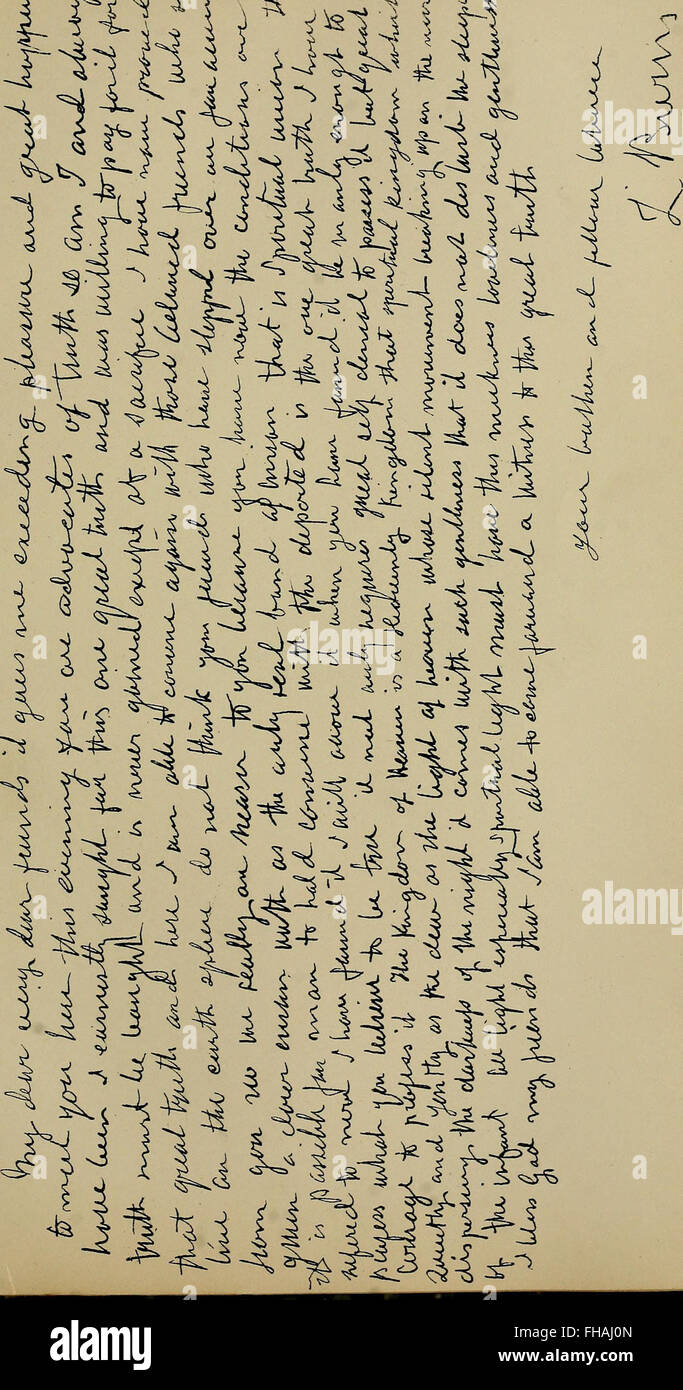 My dear very dear friends it gives me exceeding pleasure and great happin
to meet you here this evening you are advocates of truth so am I and always
have been I earnestly sought for this one great truth and was willing to pay for it for
truth must be bought and is never gained except at a sacrifice I have now proved
that great truth and here I am able to convene again with those beloved friends who
live on the earth sphere do not think your friends who have stepped over are far away
from you no we really are nearer to you because you have now the conditions are
given a closer union with as the only real band of union that is spiritual union th
it is possible for man to hold converse with the departed is the one great truth I have
refered to now I have found it I will allow it when you have found it be manly enough to
possess what you believe to be true it not only requires great self denial to possess it but great
Courage to possess it The Kingdom of Heaven is a Heavenly Kingdom that spiritual kingdom which
Quietly and gently as the dew as the light of heaven whose silent movement breaking upon the
dispersing the darkness of the night it comes with such gentleness that it does not disturb the sleep
of the infant all light especially spiritual light must have this meekness loveliness and gentleness
I bless God my friends that I am able to come forward a witness to this great truth
your brethen and fellow laborer
alamy
Image ID: FHAJ0N
www.alamy.com